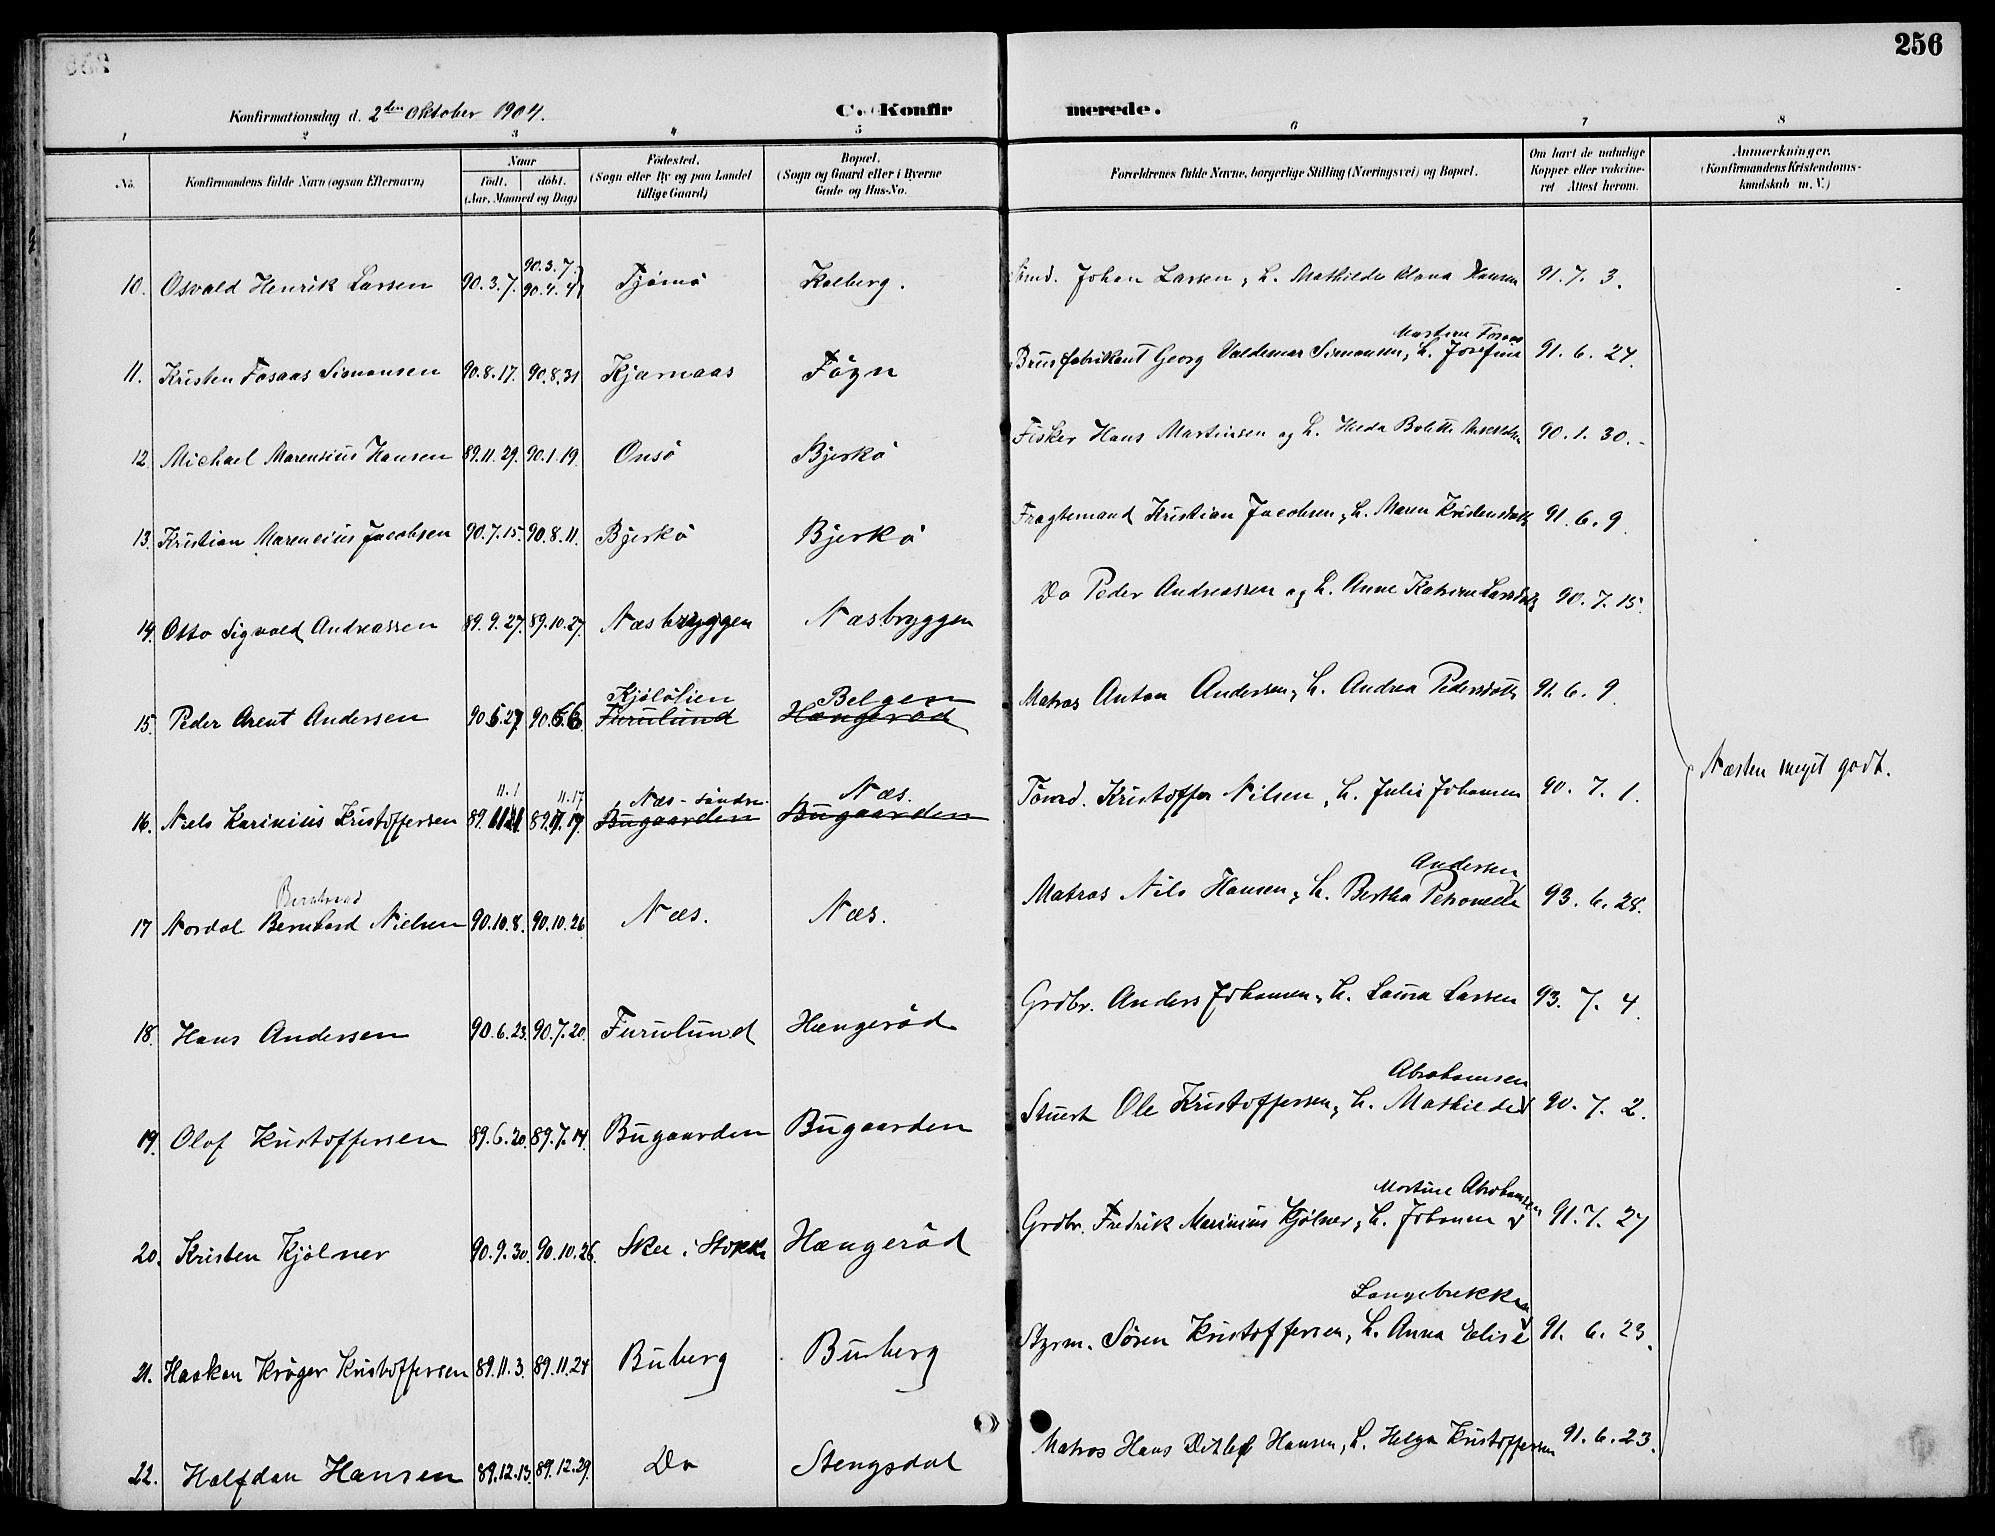 256
Konfirmationsdag d. 2den Oktober 1904.
C. Konfirmerede.
1 2 3 4 5 6 7 8
No.
Konfirmandens fulde Navn (ogsaa Efternavn)
Naar
født. døbt.
(Aar, Maaned og Dag)
Fødested.
(Sogn eller By og paa Landet
tillige Gaard)
Bopæl.
(Sogn og Gaard eller i Byerne
Gade og Hus-No.
Forældrenes fulde Navne, borgerlige Stilling (Næringsvei) og Bopæl.
Om havt de naturlige
Kopper eller vaccine-
ret Attest herom.
Anmærkninger.
(Konfirmandens Kristendoms-
kundskab m. V.)
90.3.7.
10. Osvald Henrik Larsen 90.3.7. 90.4.4 Tjømø Kolberg. Johan Larsen, h. Mathilde Hansen 91.7.3.
11. Kristen Fosaas Simonsen 90.8.17. 90.8.31 Kjærnaas Føgn Brusfabrikant Georg Valdemar Simonsen, h. Josefine 91.6.24.
12. Michael Marensius Hansen 89.11.29. 90.1.19. Onsø Bjerkø Fisker Hans Martinsen og h. 90.1.30.
13. Kristian Marensius Jacobsen 90.7.15. 90.8.11. Bjerkø Bjerkø Fragtemand Kristian Jacobsen, h. Maren Kristensdatt 91.6.9.
14. Otto Sigvald Andreassen 89.9.27. 89.10.27 Næsbryggen Næsbryggen Do Peder Andreassen og h. Anne Katrine Larsdatt 90.7.15.
Kjølølien Belgen
15. Peder Arent Andersen 90.5.27 90. Furulund Hængerød Matros Anton Andersen, h. Andrea Pedersdatt 91.6.9.
Næsten meget godt.
11.1 11.17 Næs - søndre. Næs.
16. Niels Karinius Kristoffersen 89. 89. Bugaarden Bugaarden Tømd. Kristoffer Nilsen, h. Julie Johansen 90.7.1.
Andersen
17 Nordal Bernhard Nielsen 90.10.8. 90.10.26 Næs. Næs. Matros Nils Hansen, h. Bertha Petronelle 93.6.28.
18. Hans Andersen 90.6.23. 90.7.20. Furulund Hængerød Grdbr. Anders Johansen, h. Laura Larsen 93.7.4.
Abrahamsen
19. Olaf Kristoffersen 89.6.20. 89.7.14. Bugaarden Bugaarden Stuert Ole Kristoffersen, h. Mathilde 90.7.2.
Martine Abrahamsen
20. Kristen Kjølner 90.9.30. 90.10.26. Skee i Stokke Hængerød Grdbr. Fredrik Marinius Kjølner, h. Johanne 91.7.27
Langebrekke
21. Haakon Krøger Kristoffersen 89.11.3. 89.11.24 Buberg Buberg Styrm. Søren Kristoffersen, h. Anna Elise 91.6.23.
22. Halfdan Hansen 89.12.13. 89.12.29. Do Stengsdal Matros Hans Ditlef Hansen, h. Helga Kristoffersen 91.6.23.